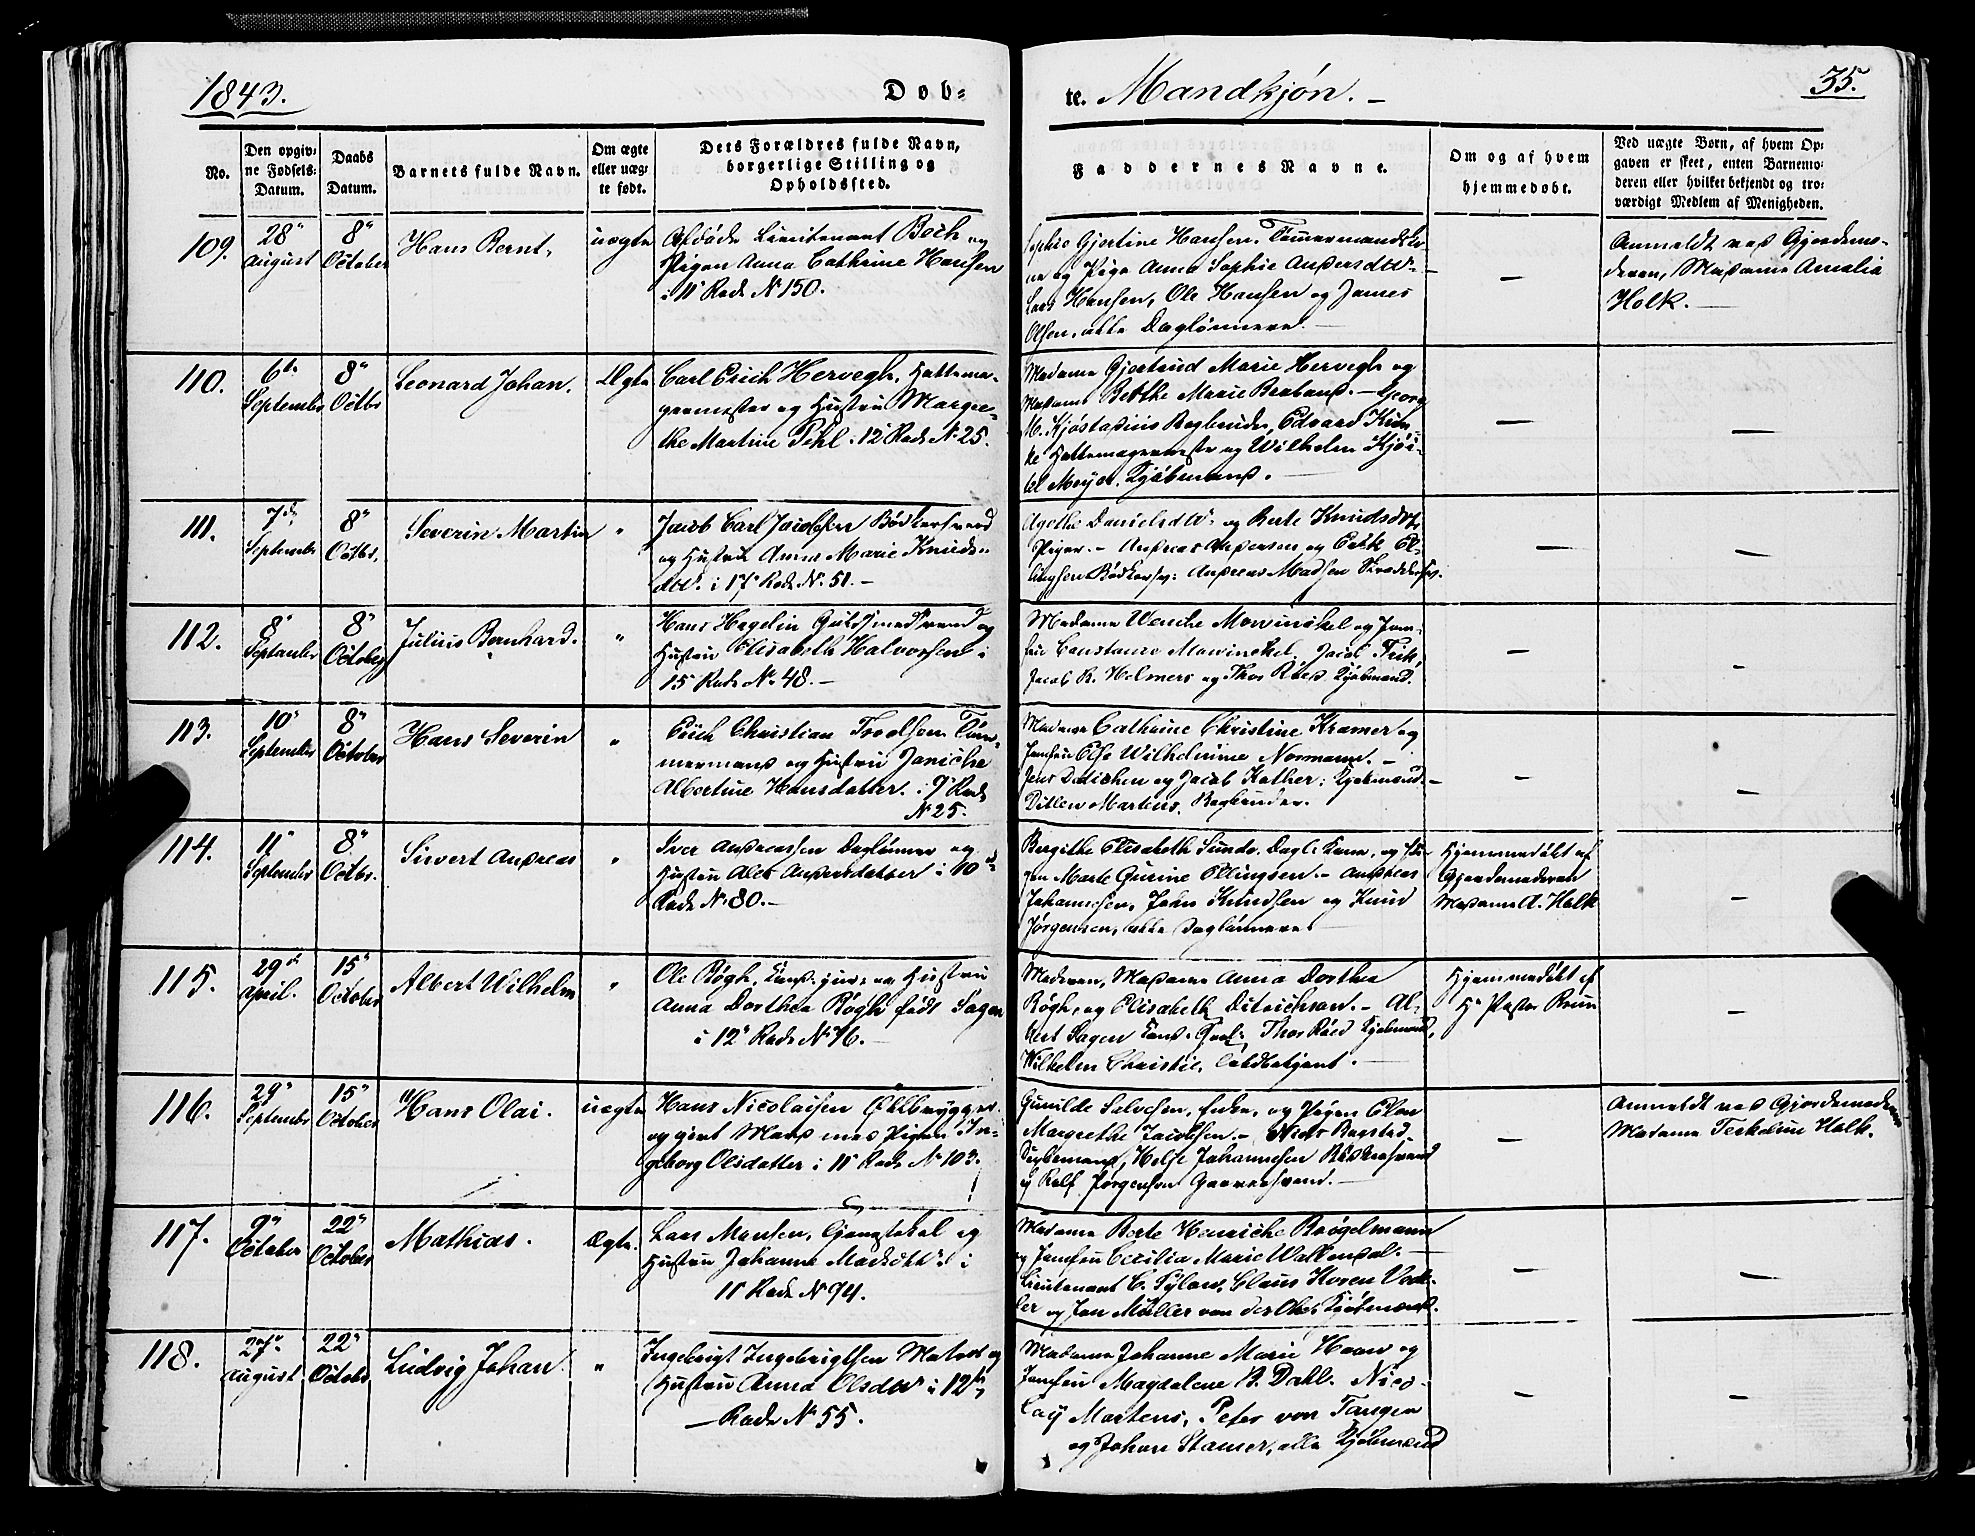 1843.
Døb-
te. Mandkjøn. -
35.
No.
Den opgiv-
ne Fødsels-
Datum.
Daabs
Datum.
Barnets fulde Navn.
Om ægte
eller uæg-
te født.
Dets Forældres fulde Navn,
borgerlige Stilling og
Opholdssted.
Faddernes Navne.
Om og af hvem
hjemmedøbt.
Ved uægte Børn, af hvem Op-
gaven er skeet, enten Barnemo-
deren eller hvilket bekjendt og tro-
værdigt Medlem af Menigheden.
109.
28"
August
8"
October
Hans Bernt,
uægte
Afdøde Lieutenant Boch og
Pigen Anna Cathrine Hansen
i 11" Rode No 150.
Gjertine Hansen,
og Pige Anna Sophie Andersdttr -
Lars Hansen, Ole Hansen og James
Olsen, alle Daglønnere.
—
Anmeldt ved Gjordemo-
deren, Madame Amalia
Holk. —
110.
6te
September
8"
Octbr
Leonard Johan.
Ægte
Carl Erich Hervegh, Hattema-
germester og Hustru Margre-
the Martine Pihl i 12" Rode No 25.
Madame Gjertrud Marie Hervegh og
Madame Berthe Marie Braband. - Georg
M. Bogbinder, Edvard
Hattemagermester og Wilhelm
Meyer, Kjøbmænd.
—
—
111.
7de
Septembr
8"
Octbr.
Severin Martin
"
Jacob Carl Jacobsen Bødkersvend
og Hustru Anna Marie Knuds-
dttr. i 17" Rode No. 51. -
Agethe Danielsdttr. og Berte Knudsdttr
Piger. - Andreas Andersen og
Bødkersv: Andreas Madsen Skrædersv.
—
—
112.
8"
September
8"
October
Julius Bernhard.
"
Hans Hagelin Guldsmedsvend og
Hustru Elisabeth Halvorsen i
15 Rode No. 48. -
Madame Wenche Mowinckel og Jom-
fru Constance Mowinckel. Jacob
Jacob R. Helmers og Thor Røed Kjøbmænd.
—
—
113.
10"
September
8"
October
Hans Severin
"
Erich Christian Troelsen Tøm-
mermand og Hustru Janiche
Albertine Hansdatter. i 9" Rode
No 25.
Madame Cathrine Christine Kramer og
Jomfru Else Wilhelmine Normann. -
Jens og Jacob Kjøbmænd. -
Ditlew Martens, Bogbinder.
—
—
114.
11"
September
8"
Octbr.
Sivert Andreas
"
Iver Andreassen Daglønner og
Hustru Alet Andersdatter i 10de
Rode No. 80. -
Bergithe Elisabeth Sunde, Dagl: Kone, og Pi-
gen Marte Gurine Ellingsen. - Andreas
Johannesen, John Knudsen og Knud
Jørgensen, alle Daglønnere.
Hjemmedøbt af
Gjordemoderen
Madame A. Holk
—
115.
29de
April.
15"
October
Albert Wilhelm
"
Ole Bøgh, Cand: jur: og Hustru
Anna Dorthea Bøgh født Sagen
i 12" Rode No 76. -
Moderen, Madame Anna Dorthea
Bøgh, og Elisabeth Ditrichson. - Al-
bert Sagen Cand: Theol: Thor Røed Kjøbmænd,
Wilhelm Christie,
Hjemmedøbt af
Hr. Pastor Bruun
—
116.
29"
September
15"
October
Hans Olai.
uægte
Hans Nicolaisen Ølbrygger
og givt Mand med Pigen In-
geborg Olsdatter i 11" Rode No 103.
Gunilde Salvesen, Enke, og Pigen Elen
Margrethe Jacobsen. - Bugsted,
Helje Johannesen Bødkersvend
og Rolf Jørgensen Garversvend. -
—
Anmeldt ved Gjordemoderen
Madame Holk.
117.
9"
October
22"
October
Mathias.
Ægte.
Lars Monsen, og
Hustru Johanne Madsdttr. i
11 Rode No 94.
Madame Berte Henriche Brøgelmann
og Jomfru Cecilia Marie Wallendal. -
Lieutenant C. Sylow, Claus Koren Ved-
ler og Jan Müller van der Ohe, Kjøbmænd.
—
—
118.
27de
August
22"
Octobr.
Ludvig Johan.
"
Ingebrigt Ingebrigtsen Matros og
Hustru Anna Olsdttr i 12te
Rode No 55.
Madame Johanne Marie og
Jomfru Magdalene B. Dahl. Nico-
lay Martens, Peter von Tangen
og Johan Stamer, alle Kjøbmænd
—
—